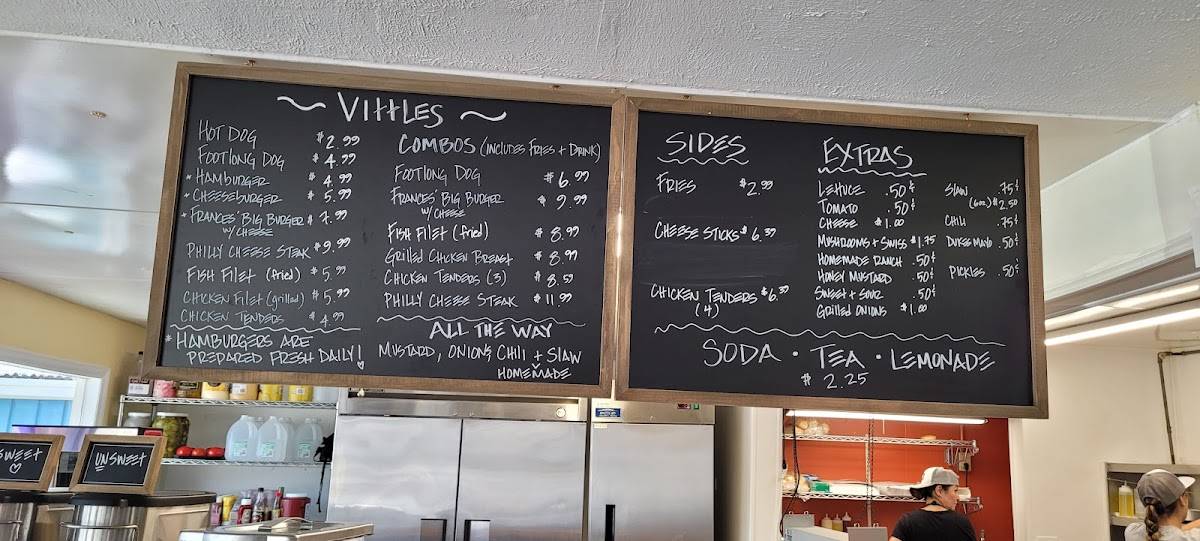 ~ VITTLES ~
HOT DOG $2.99
FOOTLONG DOG $4.99
*HAMBURGER $4.99
*CHEESEBURGER $5.99
*FRANCES' BIG BURGER $7.99
W/ CHEESE
PHILLY CHEESE STEAK $9.99
FISH FILET (fried) $5.99
CHICKEN FILET (grilled) $5.99
CHICKEN TENDERS $4.99
*HAMBURGERS ARE
PREPARED FRESH DAILY!
COMBOS (INCLUDES FRIES + DRINK)
FOOTLONG DOG $6.99
FRANCES' BIG BURGER $9.99
W/ CHEESE
FISH FILET (fried) $8.99
GRILLED CHICKEN BREAST $8.99
CHICKEN TENDERS (3) $8.59
PHILLY CHEESE STEAK $11.99
ALL THE WAY
MUSTARD, ONIONS, CHILI + SLAW
HOMEMADE
SIDES
FRIES $2.99
CHEESE STICKS $6.39
CHICKEN TENDERS $6.39
(4)
EXTRAS
LETTUCE .50¢
TOMATO .50¢
CHEESE $1.00
MUSHROOMS + SWISS $1.75
HOMEMADE RANCH .50¢
HONEY MUSTARD .50¢
SWEET + SOUR .50¢
GRILLED ONIONS $1.00
SLAW .75¢
(6oz.) $2.50
CHILI .75¢
DUKES MAYO .50¢
PICKLES .50¢
SODA · TEA · LEMONADE
$2.25
SWEET
UNSWEET